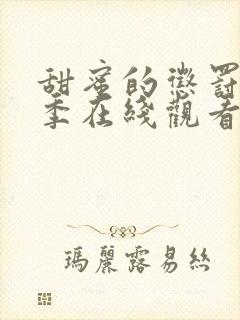 甜蜜的懲罰
季在綫觀看
瑪麗露易絲